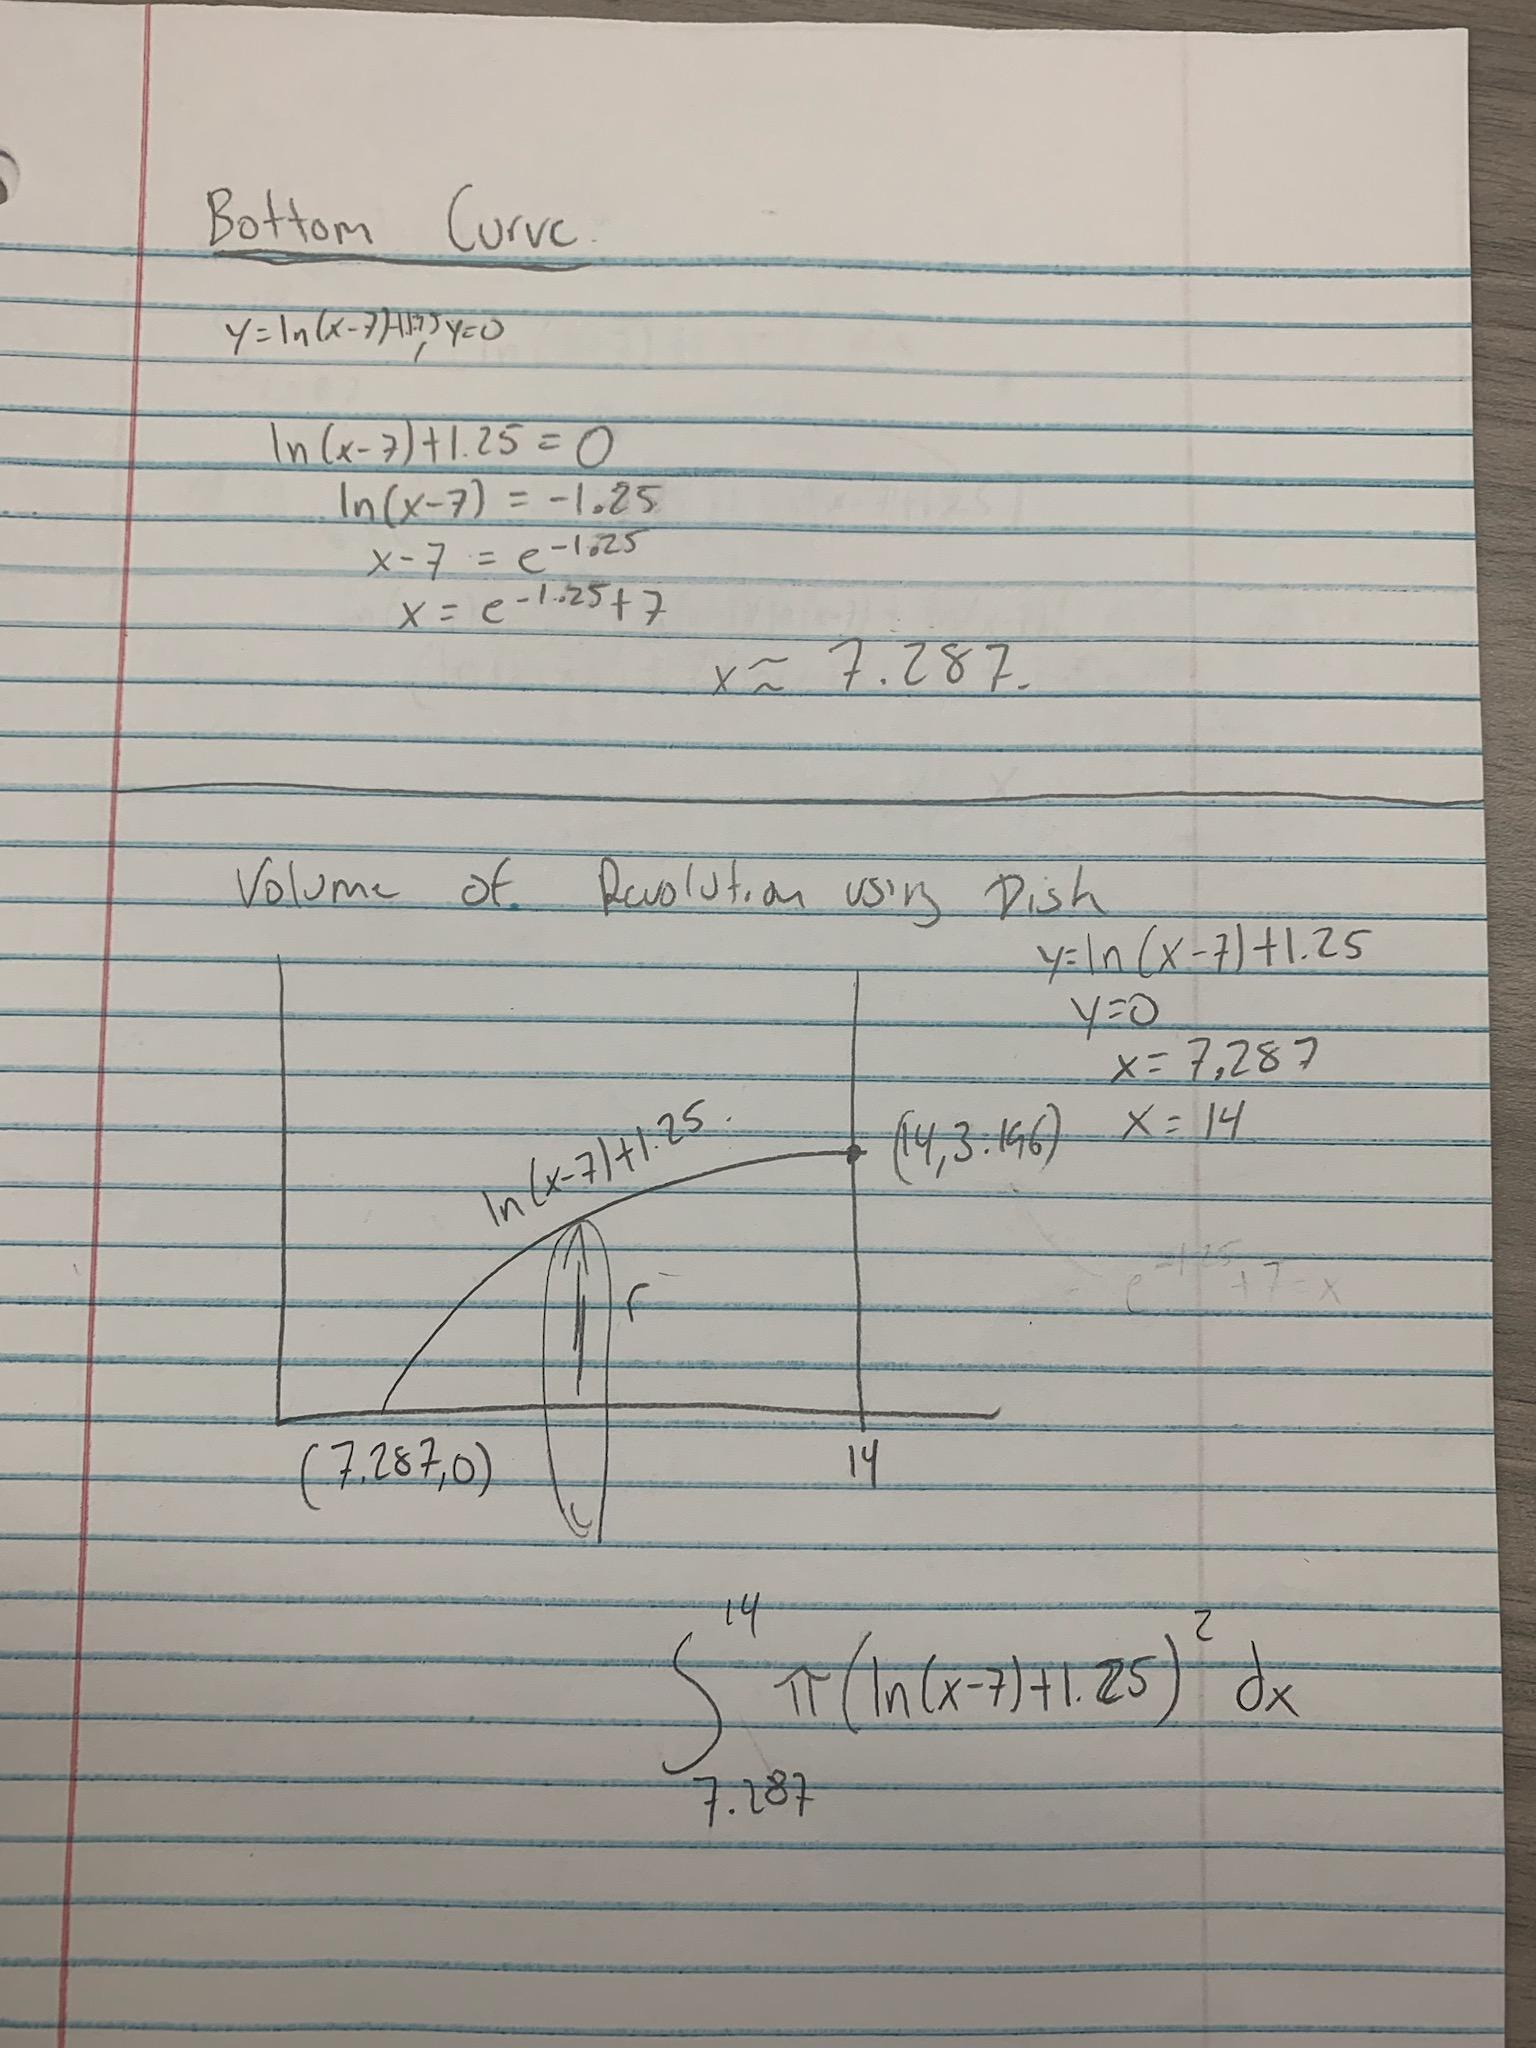 Bottom Curve.
y=ln(x-7)+1.25, y=0
ln(x-7)+1.25=0
ln(x-7) = -1.25
x-7 = e^-1.25
x = e^-1.25+7
x ≈ 7.287.
Volume of Revolution using Dish
y=ln(x-7)+1.25
y=0
x=7.287
x=14
ln(x-7)+1.25
(14,3.196)
e^-1.25+7=x
r
(7.287,0)
14
∫ 14 7.287 π(ln(x-7)+1.25)^2 dx